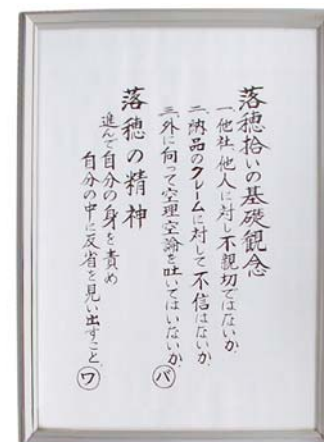 落穂拾いの基礎観念
一、他社、他人に対し不親切ではないか、
二、納品のクレームに対して不信はないか、
三、外に向って空理空論を吐いてはいないか、
バ
落穂の精神
進んで自分の身を責め
自分の中に反省を見い出すこと、
ワ